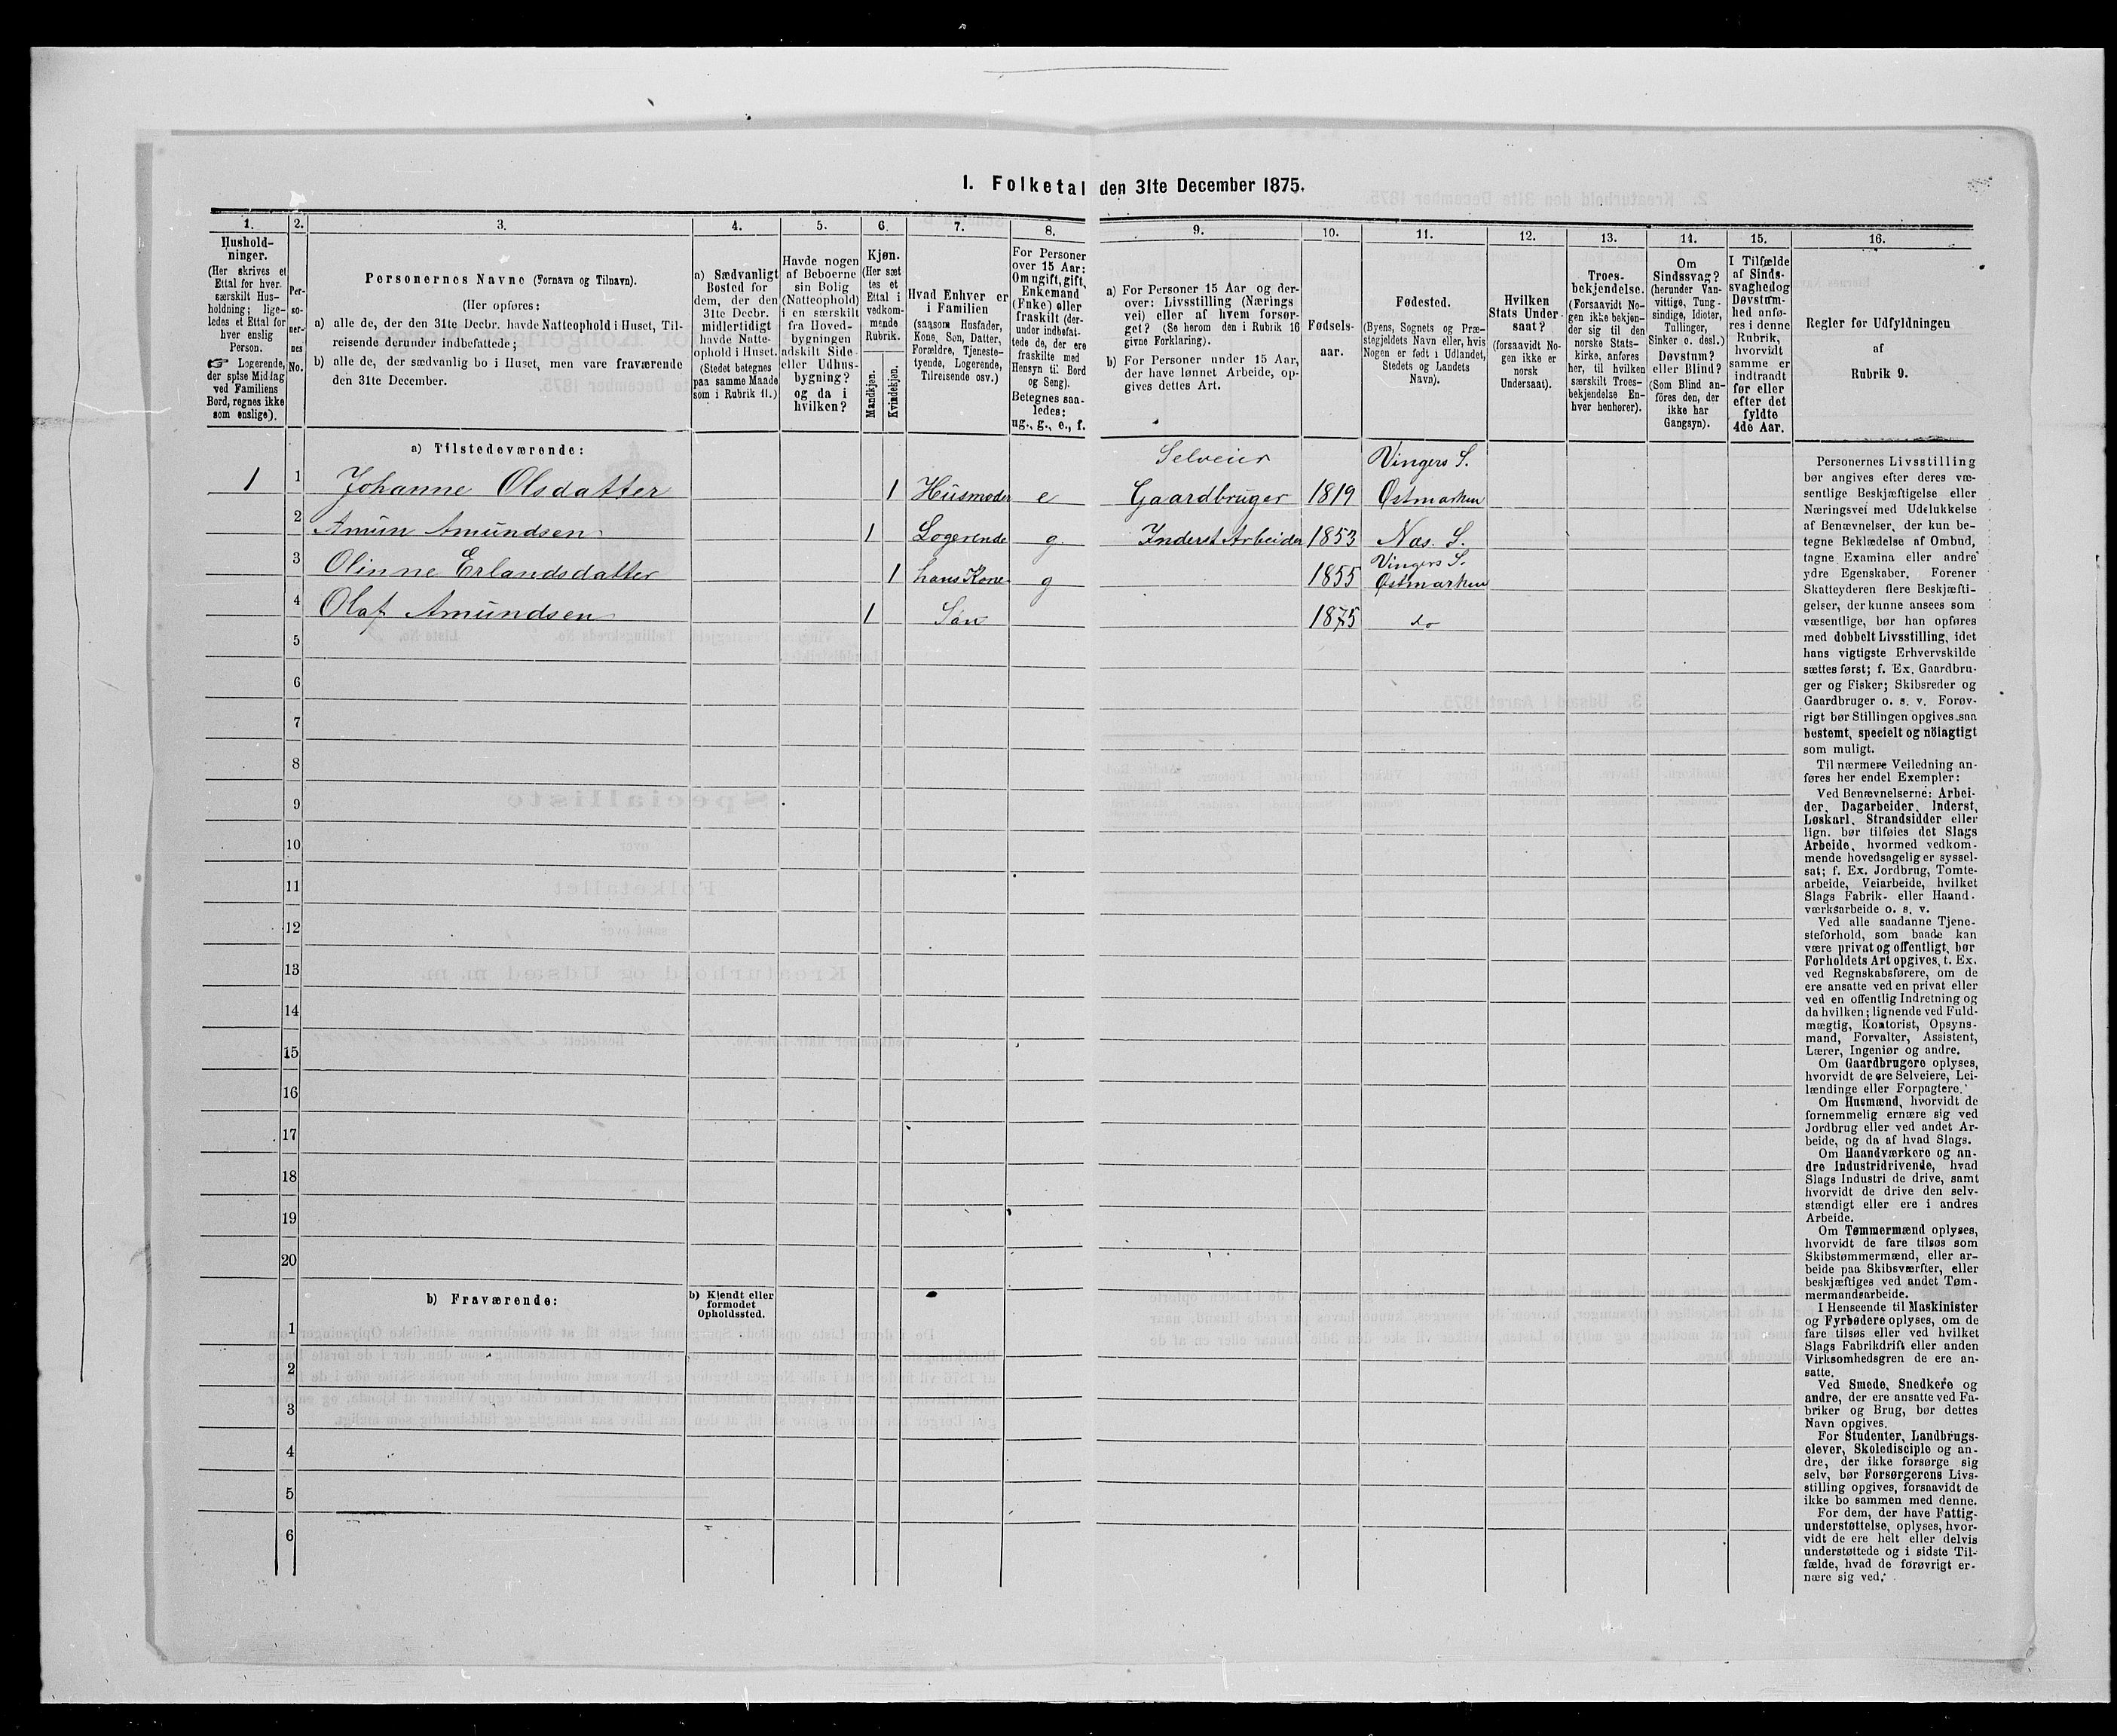 1. Folketal den 31te December 1875.
1.
2.
3.
4.
5.
6.
7.
8.
9.
10.
11.
12.
13.
14.
15.
16.
Hushold-
ninger.
(Her skrives et
Ettal for hver
særskilt Hus-
holdning; lige-
ledes et Ettal for
hver enslig
Person.
☞ Logerende,
der spise Middag
ved Familiens
Bord, regnes ikke
som enslige).
Per-
so-
ner-
nes
No.
Personernes Navne (Fornavn og Tilnavn).
(Her opføres:
a) alle de, der den 31te Decbr. havde Natteophold i Huset, Til-
reisende derunder indbefattede;
b) alle de, der sædvanlig bo i Huset, men vare fraværende
den 31te December.
a) Sædvanligt
Bosted for
dem, der den
31te Decbr.
midlertidigt
havde Natte-
ophold i Huset.
(Stedet betegnes
paa samme Maade
som i Rubrik 11.)
Havde nogen
af Beboerne
sin Bolig
(Natteophold)
i en særskilt
fra Hoved-
bygningen
adskilt Side-
eller Udhus-
bygning?
og da i
hvilken?
Kjøn.
(Her sæt
tes et
Ettal i
vedkom-
mende
Rubrik.
Mandkjøn.
Kvindekjøn.
Hvad Enhver er
i Familien
(saasom Husfader,
Kone, Søn, Datter,
Forældre, Tjeneste-
tyende, Logerende,
Tilreisende osv.)
For Personer
over 15 Aar:
Om ugift, gift,
Enkemand
(Enke) eller
fraskilt (der-
under indbefat-
tede de, der ere
fraskilte med
Hensyn til Bord
og Seng).
Betegnes saa-
ledes:
ug., g., e., f.
a) For Personer 15 Aar og der-
over: Livsstilling (Nærings
vei) eller af hvem forsør-
get? (Se herom den i Rubrik 16
givne Forklaring).
b) For Personer under 15 Aar,
der have lønnet Arbeide, op-
gives dettes Art.
Fødsels-
aar.
Fødested.
(Byens, Sognets og Præ-
stegjeldets Navn eller, hvis
Nogen er født i Udlandet,
Stedets og Landets
Navn).
Hvilken
Stats Under-
saat?
(forsaavidt No-
gen ikke er
norsk
Undersaat).
Troes-
bekjendelse.
(Forsaavidt No-
gen ikke bekjen-
der sig til den
norske Stats-
kirke, anføres
her, til hvilken
særskilt Troes-
bekjendelse En-
hver henhører).
Om
Sindssvag?
(herunder Van-
vittige, Tung-
sindige, Idioter,
Tullinger,
Sinker o. desl.)
Døvstum?
eller Blind?
(Som Blind an-
føres den, der
ikke har
Gangsyn).
I Tilfælde
af Sinds-
svaghed og
Døvstum-
hed anfø-
res i denne
Rubrik,
hvorvidt
samme er
indtraadt
før eller
efter det
fyldte
4de Aar.
Regler for Udfyldningen
af
Rubrik 9.
a) Tilstedeværende:
Selveier Vingers S.
1 1 Johanne Olsdatter 1 Husmoder e Gaardbruger 1819 Østmarken
2 Amun Amundsen 1 Logerende g Inderst Arbeider 1853 Næs. S.
Vingers S.
3 Olinne Erlandsdatter 1 hans Kone g 1855 Østmarken
4 Olaf Amundsen 1 Søn 1875 do
5
6
7
8
9
10
11
12
13
14
15
16
17
18
19
20
b) Fraværende:
b) Kjendt eller
formodet
Opholdssted.
1
2
3
4
5
6
Personernes Livsstilling
bør angives efter deres væ-
sentlige Beskjæftigelse eller
Næringsvei med Udelukkelse
af Benævnelser, der kun be-
tegne Beklædelse af Ombud,
tagne Examina eller andre
ydre Egenskaber. Forener
Skatteyderen flere Beskjæfti-
gelser, der kunne ansees som
væsentlige, bør han opføres
med dobbelt Livsstilling, idet
hans vigtigste Erhvervskilde
sættes først; f. Ex. Gaardbru-
ger og Fisker; Skibsreder og
Gaardbruger o. s. v. Forøv-
rigt bør Stillingen opgives saa
bestemt, specielt og nöiagtigt
som muligt.
Til nærmere Veiledning an-
føres her endel Exempler:
Ved Benævnelserne: Arbei-
der, Dagarbeider, Inderst,
Løskarl, Strandsidder eller
lign. bør tilføies det Slags
Arbeide, hvormed vedkom-
mende hovedsagelig er syssel-
sat; f. Ex. Jordbrug, Tomte-
arbeide, Veiarbeide, hvilket
Slags Fabrik- eller Haand-
værksarbeide o. s. v.
Ved alle saadanne Tjene-
steforhold, som baade kan
være privat og offentligt, bør
Forholdets Art opgives, t. Ex.
ved Regnskabsførere, om de
ere ansatte ved en privat eller
ved en offentlig Indretning og
da hvilken; lignende ved Fuld-
mægtig, Kontorist, Opsyns-
mand, Forvalter, Assistent,
Lærer, Ingeniør og andre.
Om Gaardbrugere oplyses,
hvorvidt de ere Selveiere, Lei-
lændinge eller Forpagtere.
Om Husmænd, hvorvidt de
fornemmelig ernære sig ved
Jordbrug eller ved andet Ar-
beide, og da af hvad Slags.
Om Haandværkere og an-
dre Industridrivende, hvad
Slags Industri de drive, samt
hvorvidt de drive den selv-
stændigt eller ere i andres
Arbeide.
Om Tømmermænd oplyses,
hvorvidt de fare tilsøs som
Skibstømmermænd, eller ar-
beide paa Skibsværfter, eller
beskjæftiges ved andet Tøm-
mermandsarbeide.
I Henseende til Maskinister
og Fyrbødere oplyses, om de
fare tilsøs eller ved hvilket
Slags Fabrikdrift eller anden
Virksomhedsgren de ere an-
satte.
Ved Smede, Snedkere og
andre, der ere ansatte ved Fa-
briker og Brug, bør dettes
Navn opgives.
For Studenter, Landbrugs-
elever, Skoledisciple og an-
dre, der ikke forsørge sig
selv, bør Forsørgerens Livs-
stilling opgives, forsaavidt de
ikke bo sammen med denne.
For dem, der have Fattig-
understøttelse, oplyses, hvor-
vidt de ere helt eller delvis
understøttede og i sidste Til-
fælde, hvad de forøvrigt er-
nære sig ved.